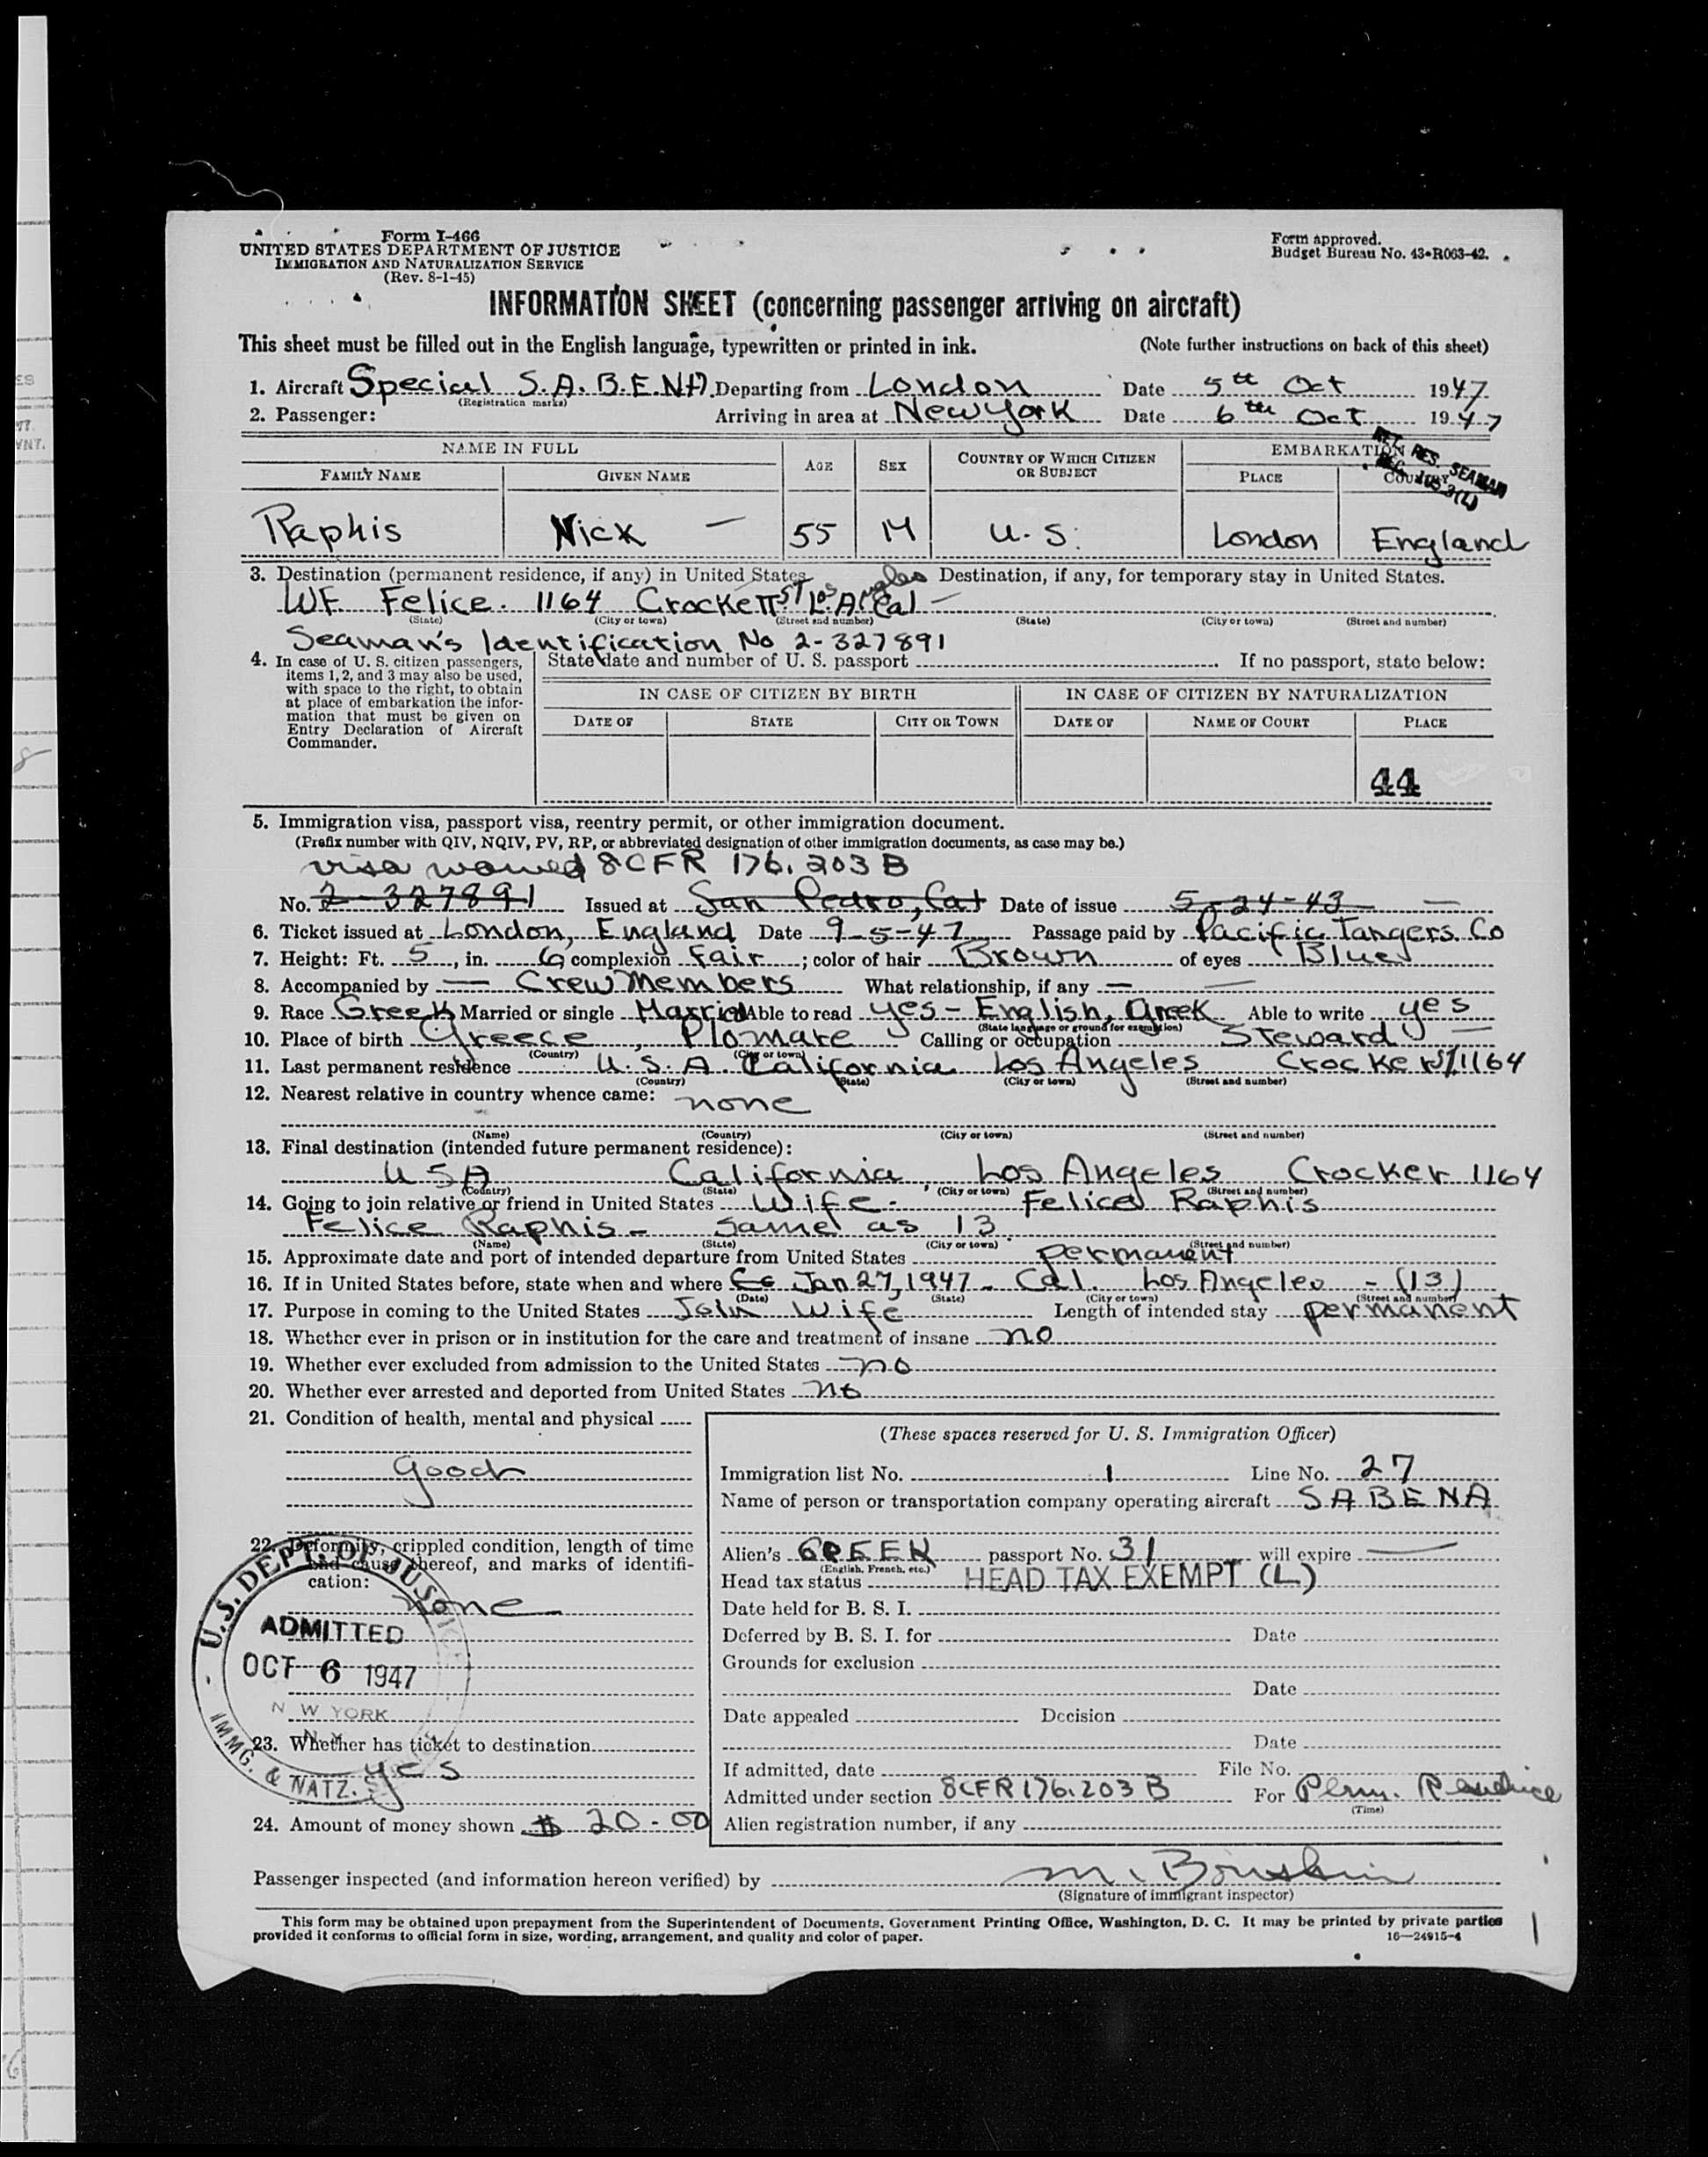 Form I-466
UNITED STATES DEPARTMENT OF JUSTICE
IMMIGRATION AND NATURALIZATION SERVICE
(Rev. 8-1-45)
Form approved.
Budget Bureau No. 43-R063-42.
INFORMATION SHEET (concerning passenger arriving on aircraft)
This sheet must be filled out in the English language, typewritten or printed in ink. (Note further instructions on back of this sheet)
1. Aircraft Special S.A.B.E.NA. Departing from London Date 5th Oct 1947
(Registration marks)
2. Passenger: Arriving in area at New York Date 6th Oct 1947
RET. RES. SEAMAN
NAME IN FULL AGE SEX COUNTRY OF WHICH CITIZEN OR SUBJECT EMBARKATION
FAMILY NAME GIVEN NAME PLACE COUNTRY
Raphis Nick — 55 M U.S. London England
3. Destination (permanent residence, if any) in United States. Destination, if any, for temporary stay in United States.
WF Felice. 1164 Crockett ST Los Angeles L.A. Cal —
(State) (City or town) (Street and number) (State) (City or town) (Street and number)
Seaman's Identification No 2-327891
4. In case of U. S. citizen passengers, items 1, 2, and 3 may also be used, with space to the right, to obtain at place of embarkation the information that must be given on Entry Declaration of Aircraft Commander.
State date and number of U. S. passport If no passport, state below:
IN CASE OF CITIZEN BY BIRTH IN CASE OF CITIZEN BY NATURALIZATION
DATE OF STATE CITY OR TOWN DATE OF NAME OF COURT PLACE
44
5. Immigration visa, passport visa, reentry permit, or other immigration document.
(Prefix number with QIV, NQIV, PV, RP, or abbreviated designation of other immigration documents, as case may be.)
visa waived 8CFR 176.203B
No. 2-327891 Issued at San Pedro, Cal Date of issue 5-24-43 —
6. Ticket issued at London, England Date 9-5-47 Passage paid by Pacific Tangers Co
7. Height: Ft. 5, in. 6 complexion Fair; color of hair Brown of eyes Blue
8. Accompanied by — Crew Members What relationship, if any —
9. Race Greek Married or single Married Able to read yes - English, Greek Able to write yes
(State language or ground for exemption)
10. Place of birth Greece, Plomare Calling or occupation Steward —
(Country) (City or town)
11. Last permanent residence U.S.A. California Los Angeles Crocker ST 1164
(Country) (State) (City or town) (Street and number)
12. Nearest relative in country whence came: none
(Name) (Country) (City or town) (Street and number)
13. Final destination (intended future permanent residence):
USA California, Los Angeles Crocker 1164
(Country) (State) (City or town) (Street and number)
14. Going to join relative or friend in United States Wife - Felice Raphis
Felice Raphis - Same as 13
(Name) (State) (City or town) (Street and number)
15. Approximate date and port of intended departure from United States permanent
16. If in United States before, state when and where Jan 27, 1947 - Cal. Los Angeles - (13)
(Date) (State) (City or town) (Street and number)
17. Purpose in coming to the United States Join Wife Length of intended stay permanent
18. Whether ever in prison or in institution for the care and treatment of insane no
19. Whether ever excluded from admission to the United States no
20. Whether ever arrested and deported from United States no
21. Condition of health, mental and physical
good
22. Deformity, crippled condition, length of time and cause thereof, and marks of identification:
none
U.S. DEPT. OF JUSTICE
ADMITTED
OCT 6 1947
N W YORK
N.Y.
IMMG. & NATZ.
23. Whether has ticket to destination
yes
24. Amount of money shown $ 20-00
(These spaces reserved for U. S. Immigration Officer)
Immigration list No. 1 Line No. 27
Name of person or transportation company operating aircraft SABENA
Alien's GREEK passport No. 31 will expire —
(English, French, etc.)
Head tax status HEAD TAX EXEMPT (L)
Date held for B. S. I.
Deferred by B. S. I. for Date
Grounds for exclusion
Date
Date appealed Decision
Date
If admitted, date File No.
Admitted under section 8CFR 176.203B For Perm. Residence
(Time)
Alien registration number, if any
Passenger inspected (and information hereon verified) by M.
(Signature of immigrant inspector)
This form may be obtained upon prepayment from the Superintendent of Documents, Government Printing Office, Washington, D. C. It may be printed by private parties
provided it conforms to official form in size, wording, arrangement, and quality and color of paper. 16—24915-4